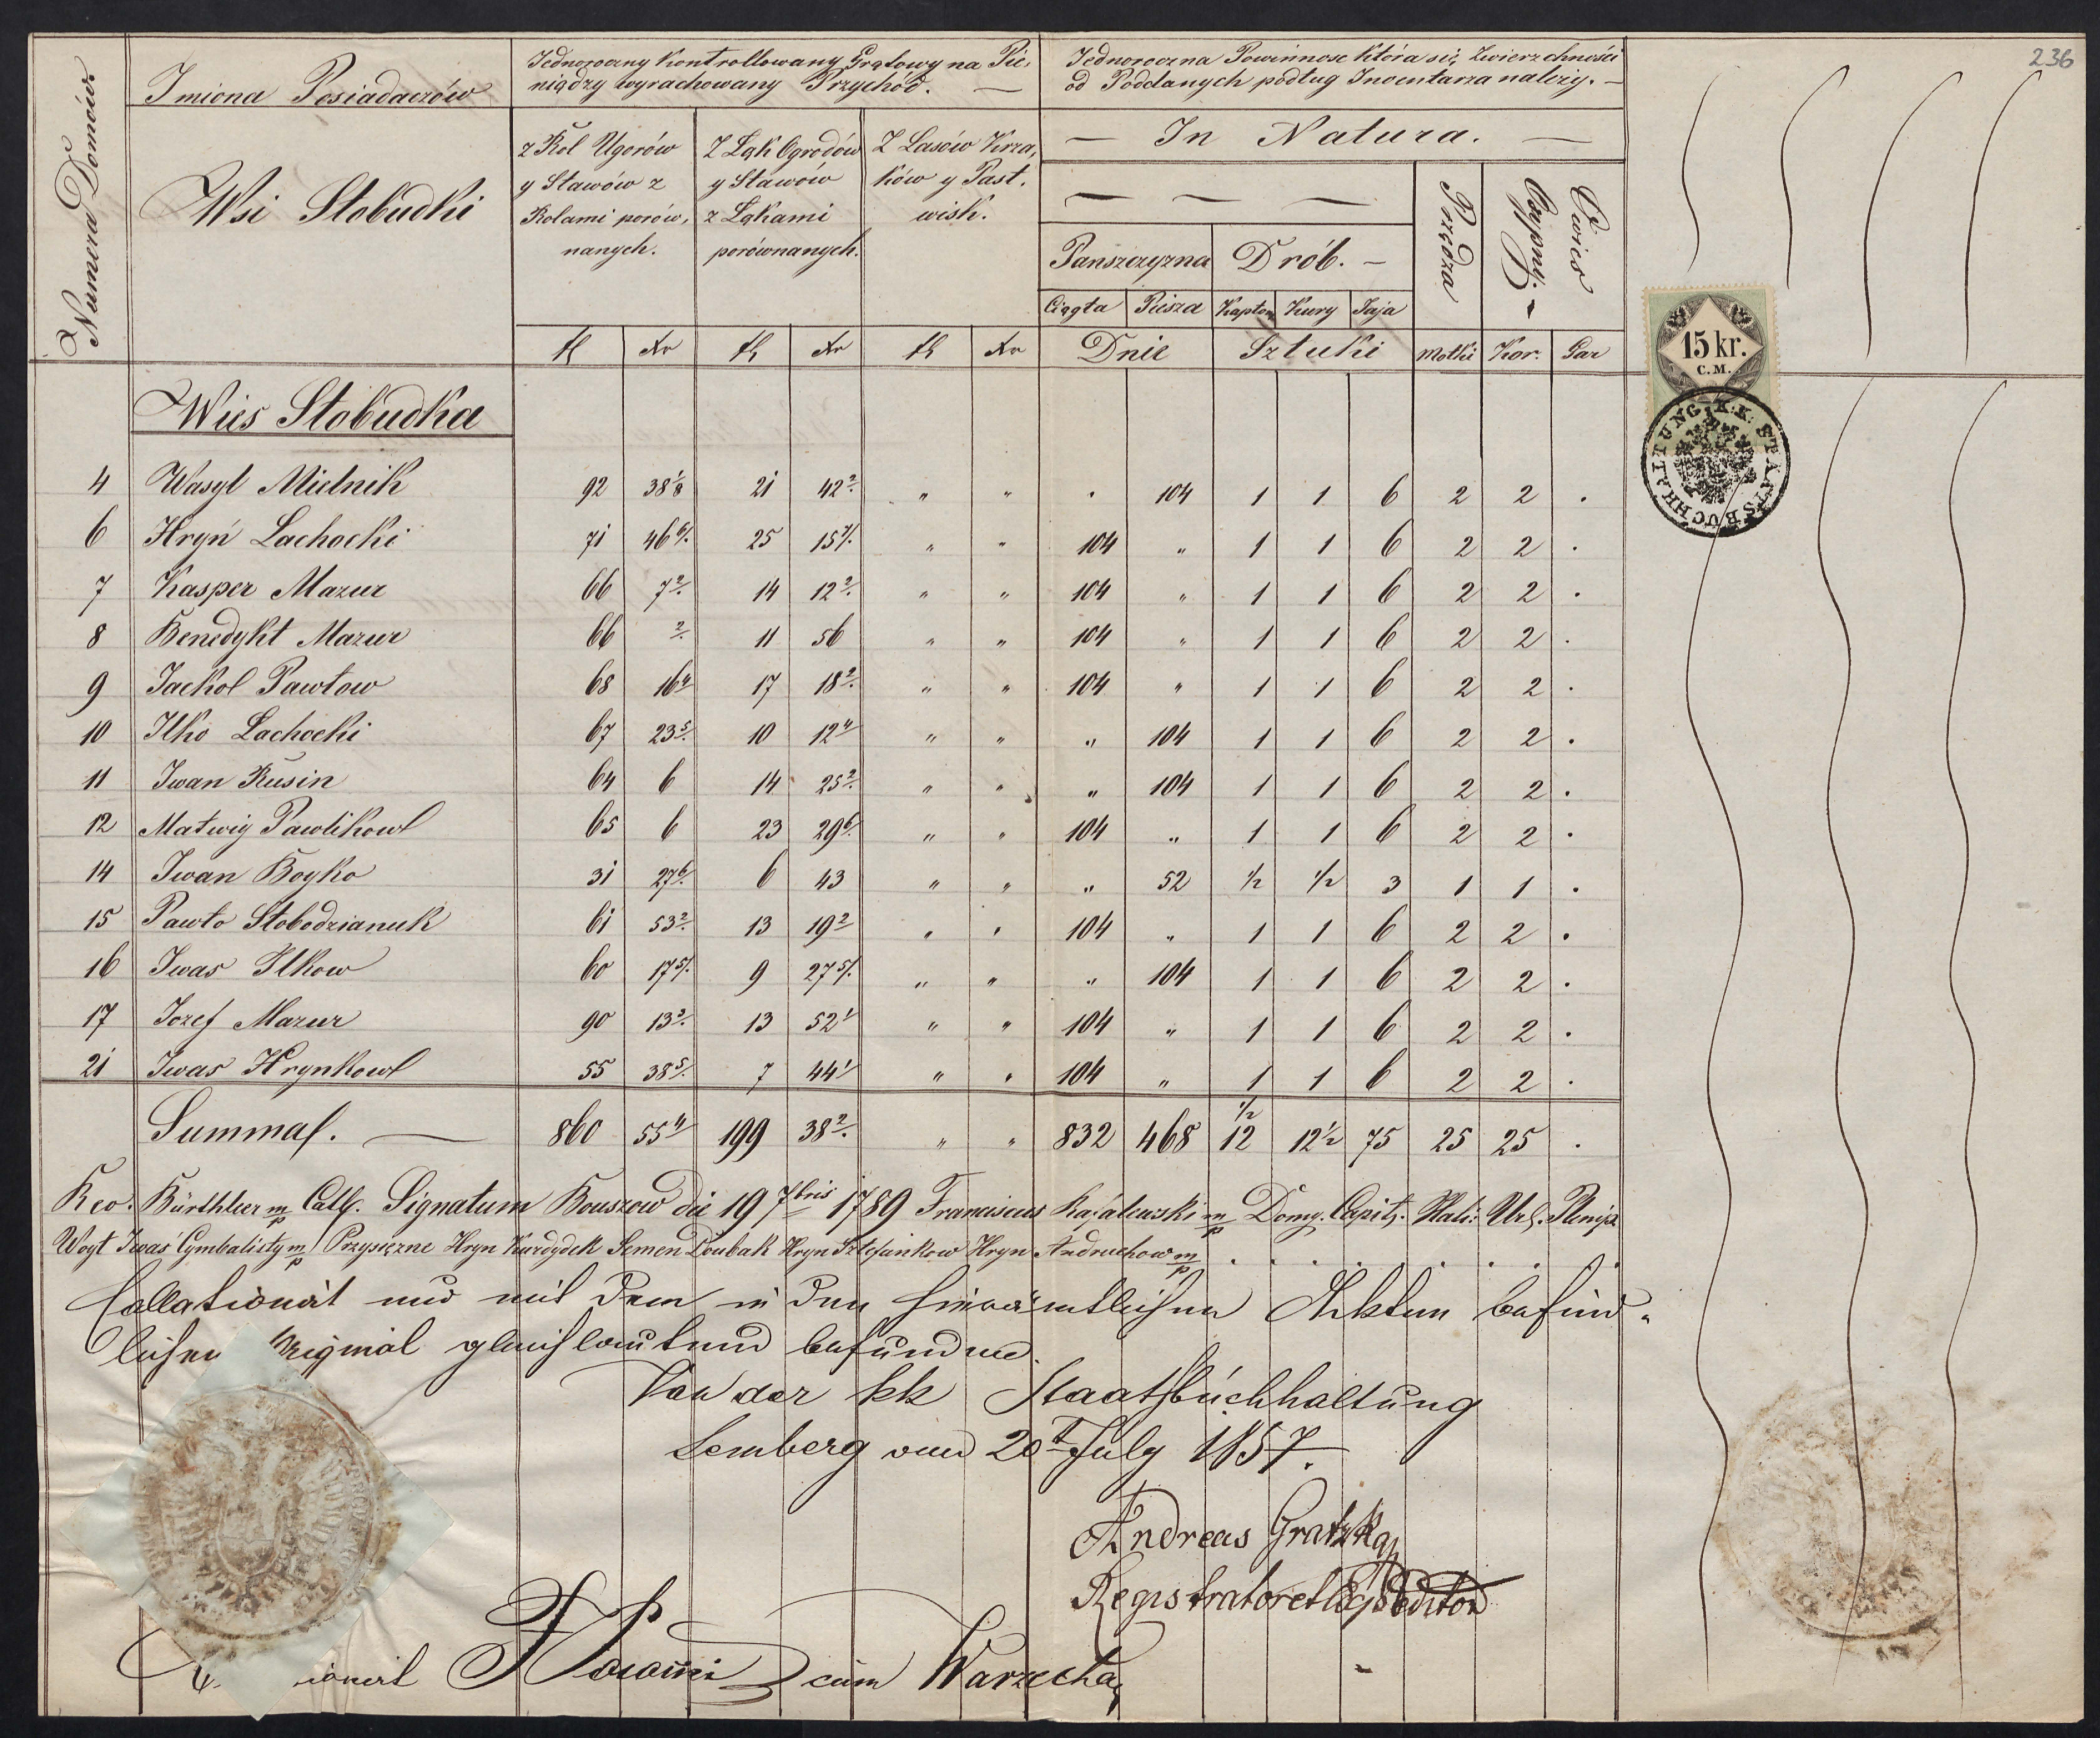 236
Numera Domów
Imiona Posiadaczów
Jednoroczny Kontrollowany Grątowy na Pie,
niądzy wyrachowany Przychód. —
Jednoroczna Powinnosc która się Zwierzchności
od Poddanych podług Inwentarza należy. —
Wsi Słobudki
z Rol Ugorów
y Stawów z
Rolami porów,
nanych.
Z Ląk Ogrodów
y Stawow
z Ląkami
porównanych.
Z Lasów Krza,
ków y Past,
wisk.
— In Natura. —
Panszczyzna
Drób. —
Przędza
Czypni
Owies
Ciągła Piesza Kapłon Kury Jaja
fl Xr fl Xr fl Xr Dnie Sztuki Motki Kor. Gar
15 kr.
C.M.
K.K. STAATSBUCHHALTUNG
Wies Słobudka
4 Wasyl Mielnik 92 38 1/8 21 42 2/. " " . 104 1 1 6 2 2 .
6 Hryń Lachocki 71 46 6/. 25 15 7/. " " 104 " 1 1 6 2 2 .
7 Kasper Mazur 66 7 2/. 14 12 2/. " " 104 " 1 1 6 2 2 .
8 Benedykt Mazur 66 2/. 11 56 " " 104 " 1 1 6 2 2 .
9 Jackol Pawłow 68 16 4/ 17 18 2/. " " 104 " 1 1 6 2 2 .
10 Ilko Lachocki 67 23 5/. 10 12 4/ " " " 104 1 1 6 2 2 .
11 Iwan Rusin 64 6 14 25 2/. " " " 104 1 1 6 2 2 .
12 Matwiy Pawlikow 65 6 23 29 6/. " " 104 " 1 1 6 2 2 .
14 Iwan Boyko 31 27 6/. 6 43 " " " 52 1/2 1/2 3 1 1 .
15 Pawło Słobodzianuk 61 53 2/. 13 19 2/ " " 104 " 1 1 6 2 2 .
16 Iwas Ilkow 60 17 5/. 9 27 5/. " " " 104 1 1 6 2 2 .
17 Jozef Mazur 90 13 3/. 13 52 1/ " " 104 " 1 1 6 2 2 .
21 Iwas Hrynkow 55 38 5/. 7 44 1/ " " 104 " 1 1 6 2 2 .
Summa. — 860 55 4/ 199 38 2/. " " 832 468 12 1/2 12 1/2 75 25 25 .
Signatum Bouszow die 19 7bris 1789 Franciscus mp Domy. Capit. Hali:
Woyt Iwaś Cymbalisty mp Przysięzne Hryn Kurdydek Semen Doubak Hryn Sztefankow Hryn Andruchow mp
Collationirt und mit dem in den hierämtlichen Akten befind-
lichen Original gleichlautend befunden.
Von der kk Staatsbuchhaltung
Lemberg am 20t July 1857.
Andreas Gratzka
Registrator et Expeditor
cum Warzecha